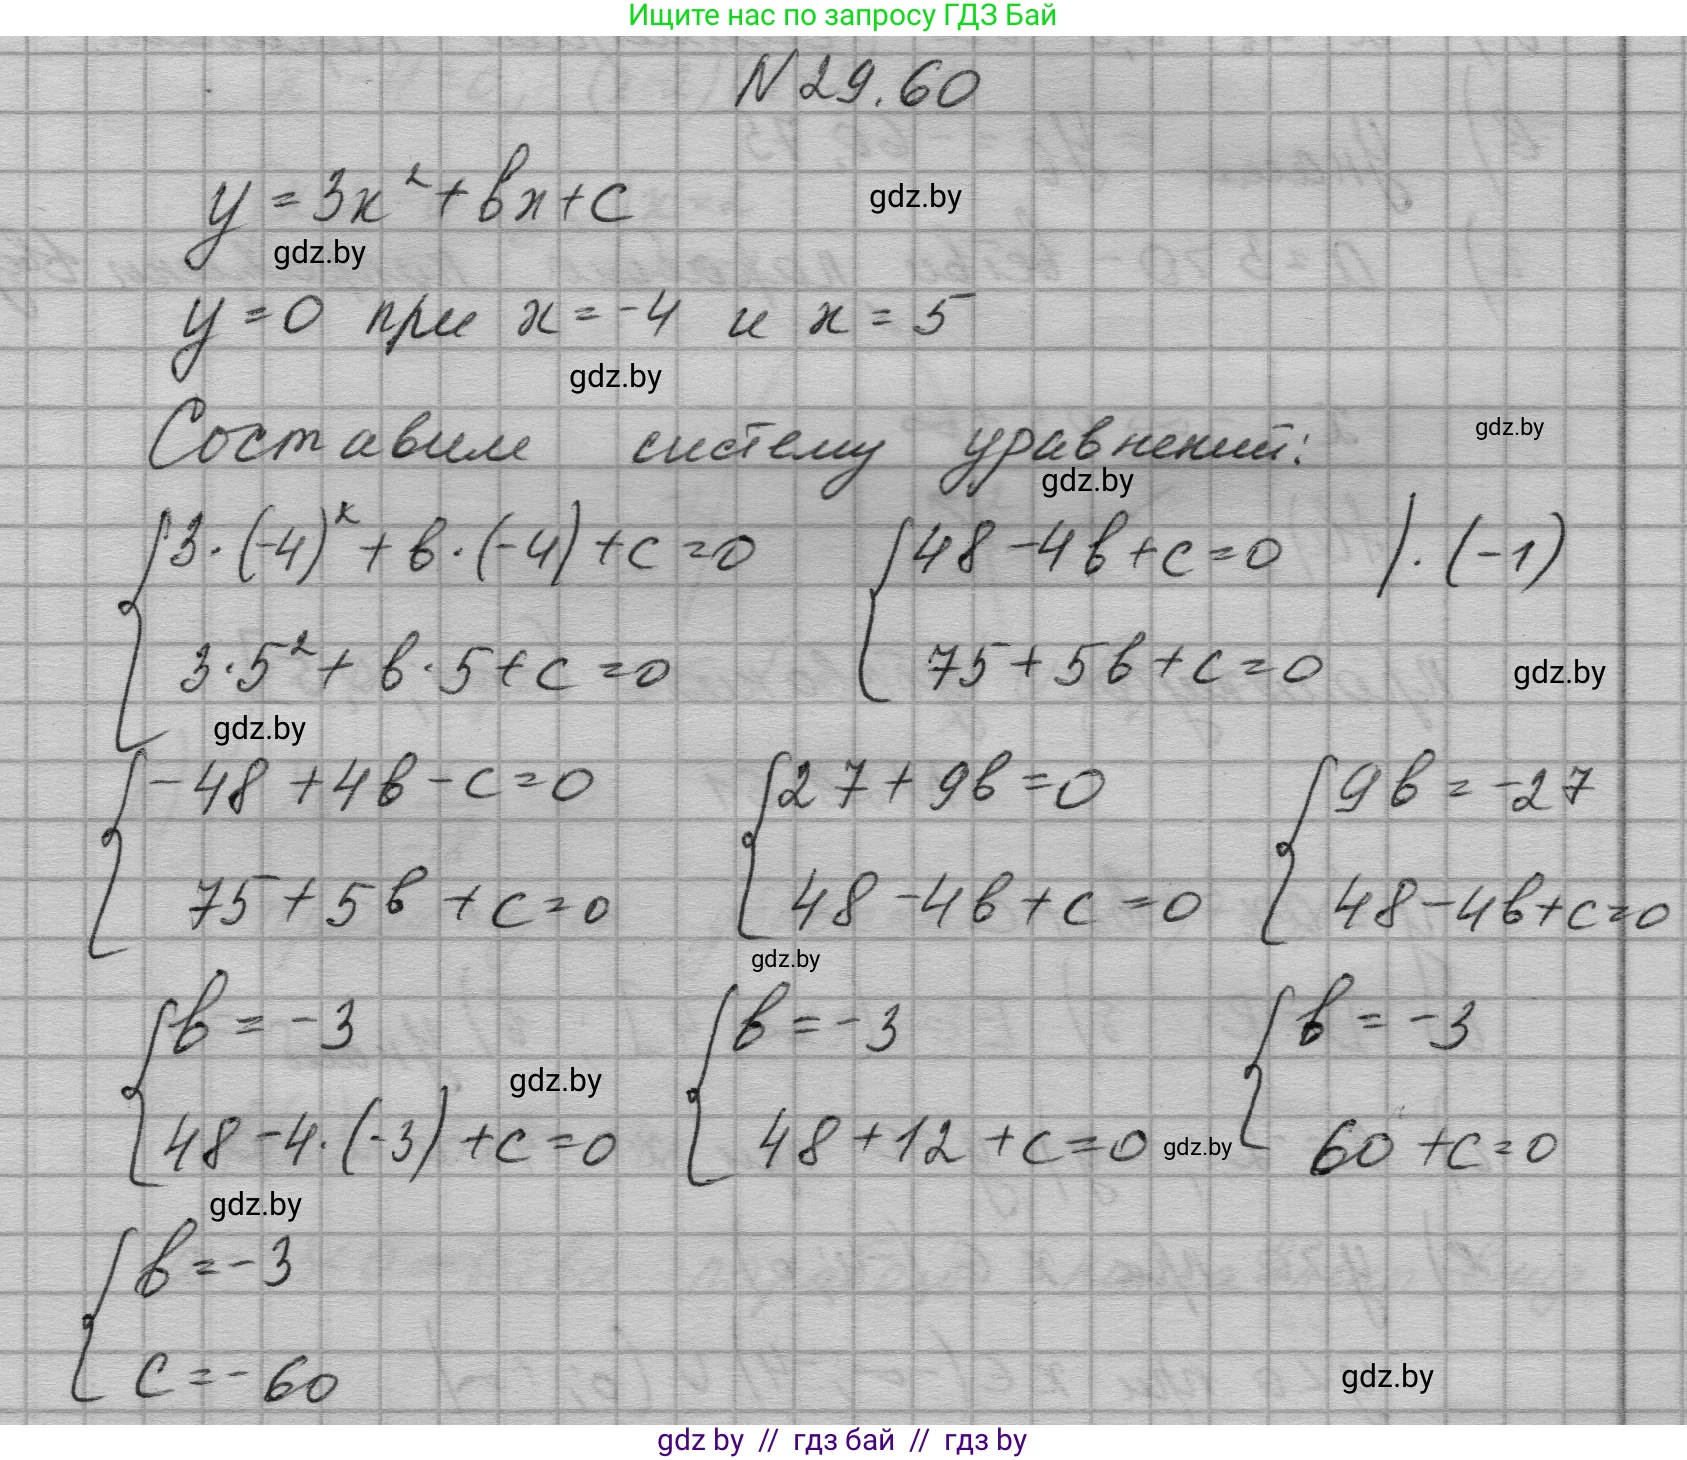 Ищите нас по запросу ГДЗ Бай
N29.60
y = 3x² + bx + c
gdz.by
gdz.by
y = 0 при x = -4 и x = 5
gdz.by
Составим систему уравнений:
gdz.by
gdz.by
{ 3·(-4)² + b·(-4) + c = 0 { 48 - 4b + c = 0 |·(-1)
3·5² + b·5 + c = 0 75 + 5b + c = 0
gdz.by
gdz.by
{ -48 + 4b - c = 0 { 27 + 9b = 0 { 9b = -27
75 + 5b + c = 0 48 - 4b + c = 0 48 - 4b + c = 0
gdz.by
{ b = -3 { b = -3 { b = -3
gdz.by
48 - 4·(-3) + c = 0 48 + 12 + c = 0 gdz.by 60 + c = 0
gdz.by
{ b = -3
c = -60
gdz.by
gdz by // гдз бай // гдз by